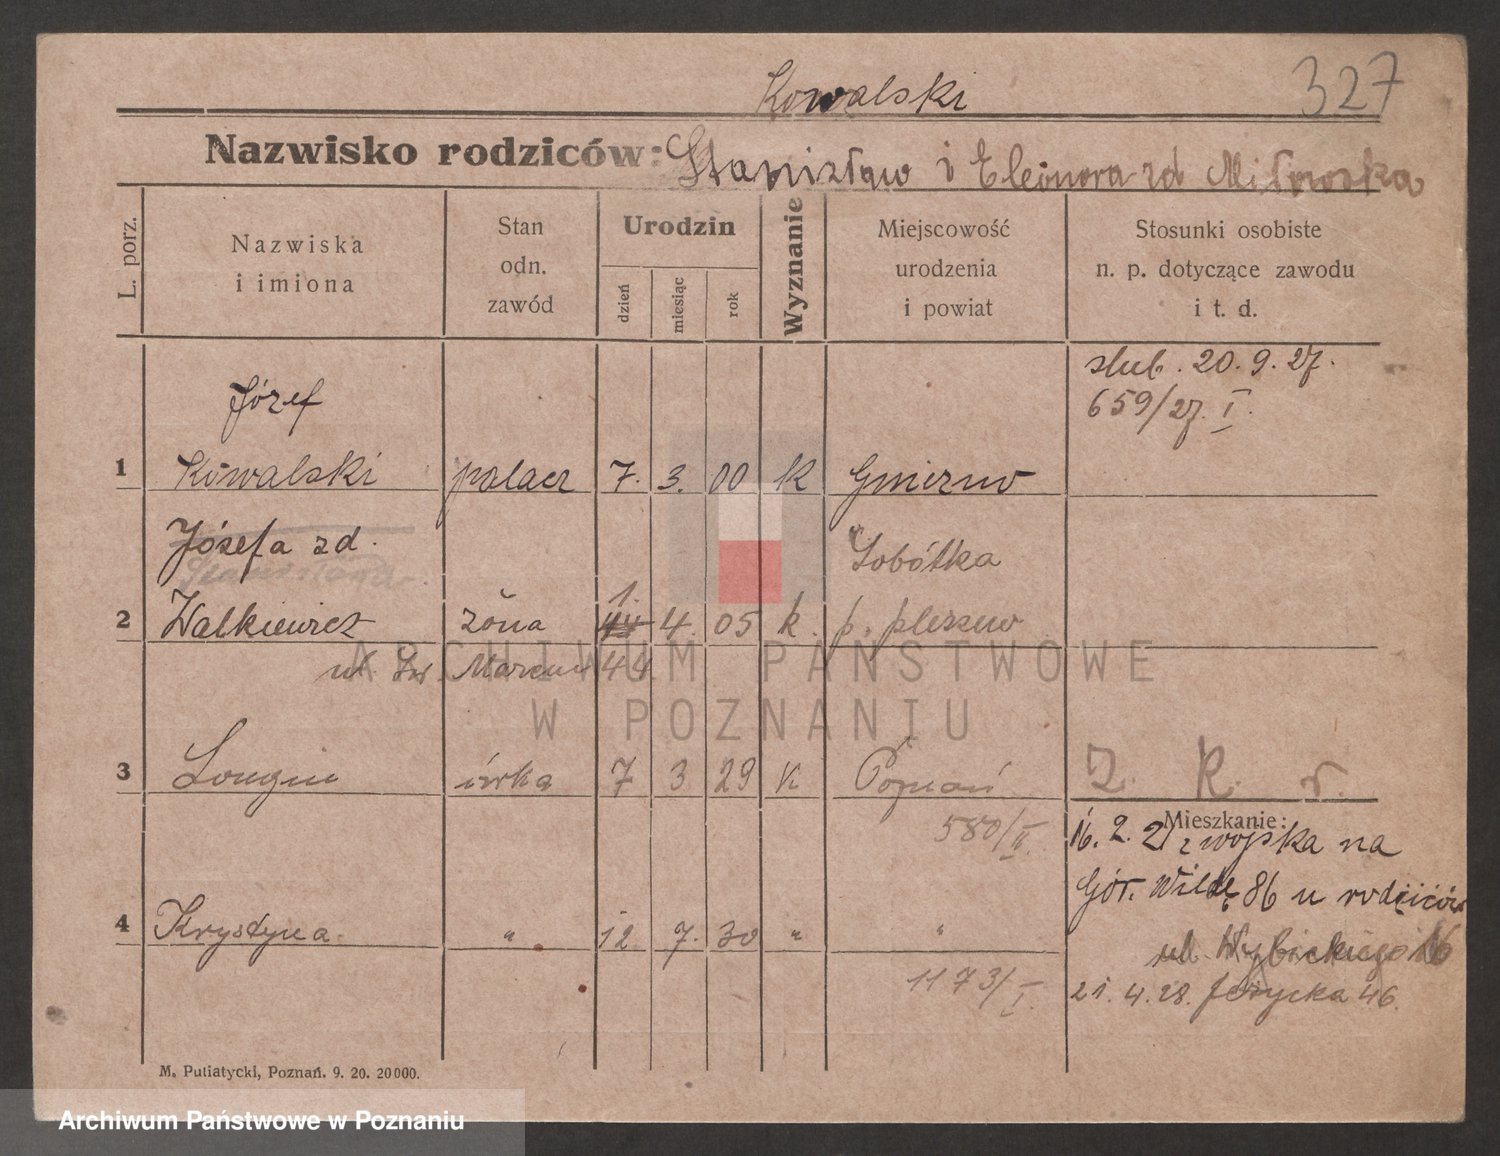 327
Kowalski
Nazwisko rodziców: Stanisław i Eleonora zd Miłowska
L. porz.
Nazwiska i imiona
Stan odn. zawód
Urodzin
dzień
miesiąc
rok
Wyznanie
Miejscowość urodzenia i powiat
Stosunki osobiste n. p. dotyczące zawodu i t. d.
ślub. 20.9.27.
659/27. I.
Józef
1 Kowalski palacz 7. 3. 00 K Gniezno
Józefa zd. Sobótka
1.
2 Walkiewicz żona 4. 05 k. p. pleszew
ul. Św Marcin 44
3 Longin córka 7 3 29 K Poznań
Z. K. r.
580/II.
Mieszkanie:
16. 2. 21 z wojska na
Gór. Wildę 86 u rodziców
4 Krystyna " 12 7. 30 " "
ul. Wybickiego 16
1173/I.
21.4.28. Jeżycka 46.
M. Putiatycki, Poznań. 9. 20. 20000.
ARCHIWUM PAŃSTWOWE
W POZNANIU
Archiwum Państwowe w Poznaniu